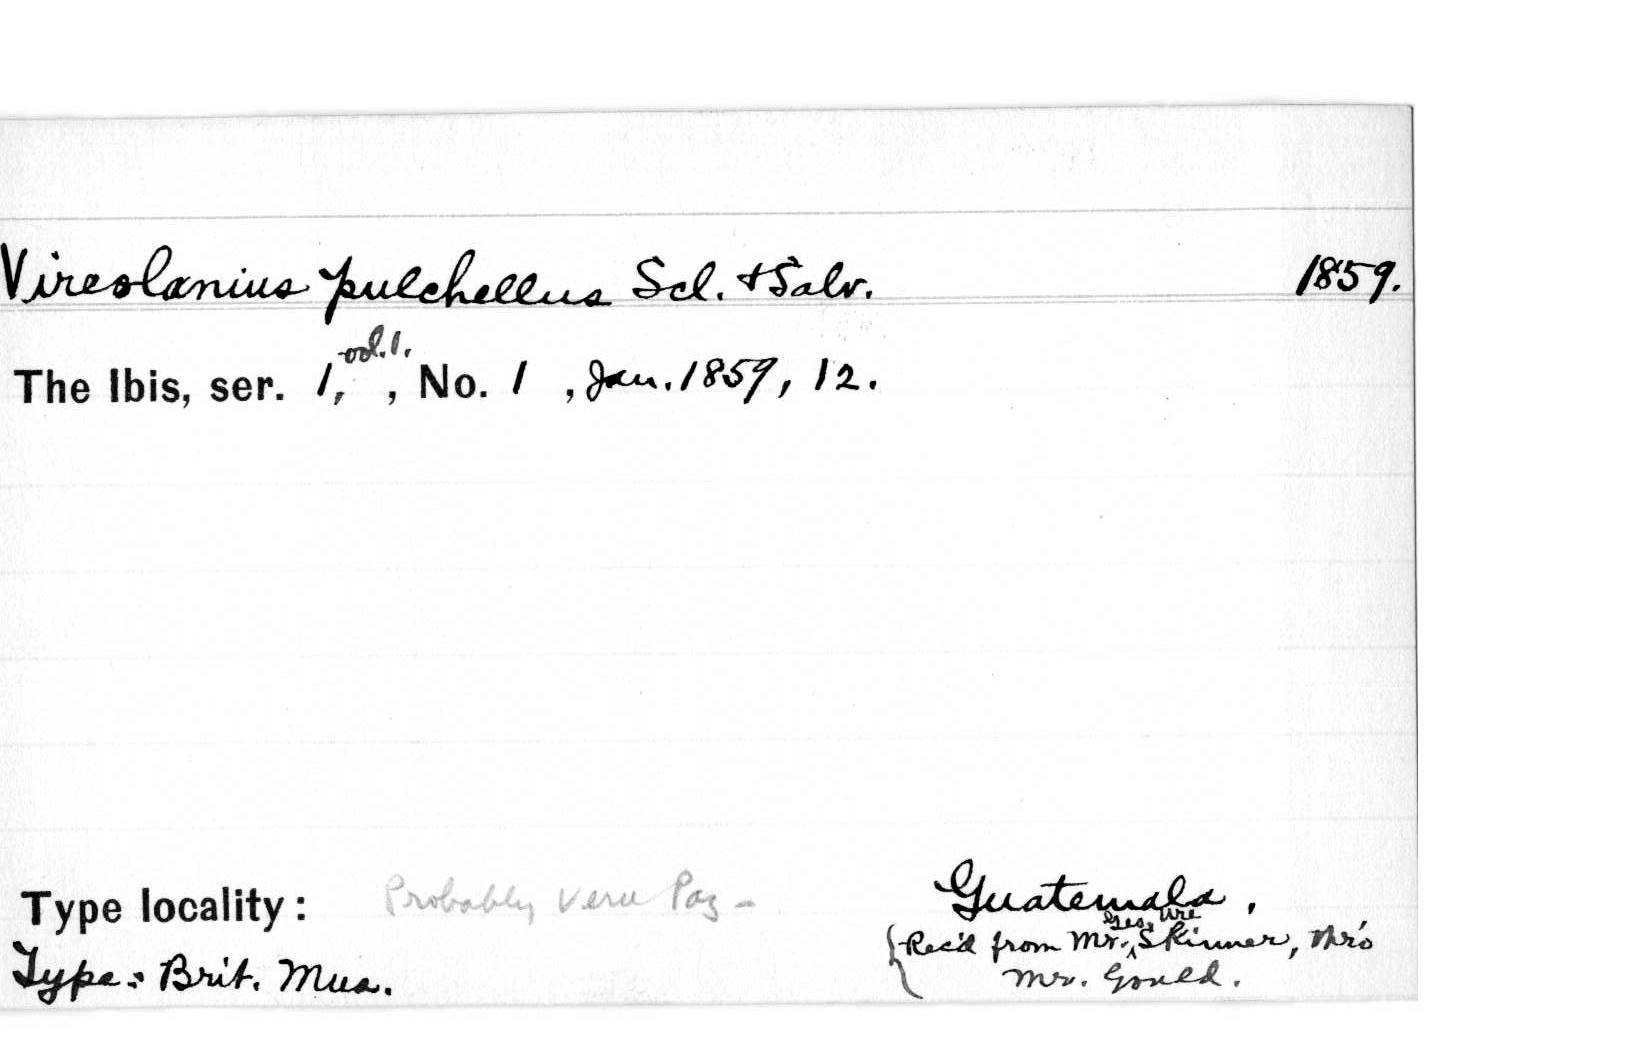 Vireolanius pulchellus Scl. & Salv. 1859.
The Ibis, ser. 1, vol. 1. , No. 1 , Jan. 1859, 12.
Type locality: Probably Vera Paz - Guatemala.
{Rec'd from Mr. Geo. Ure Skinner, thro'
Type: Brit. Mus. Mr. Gould.